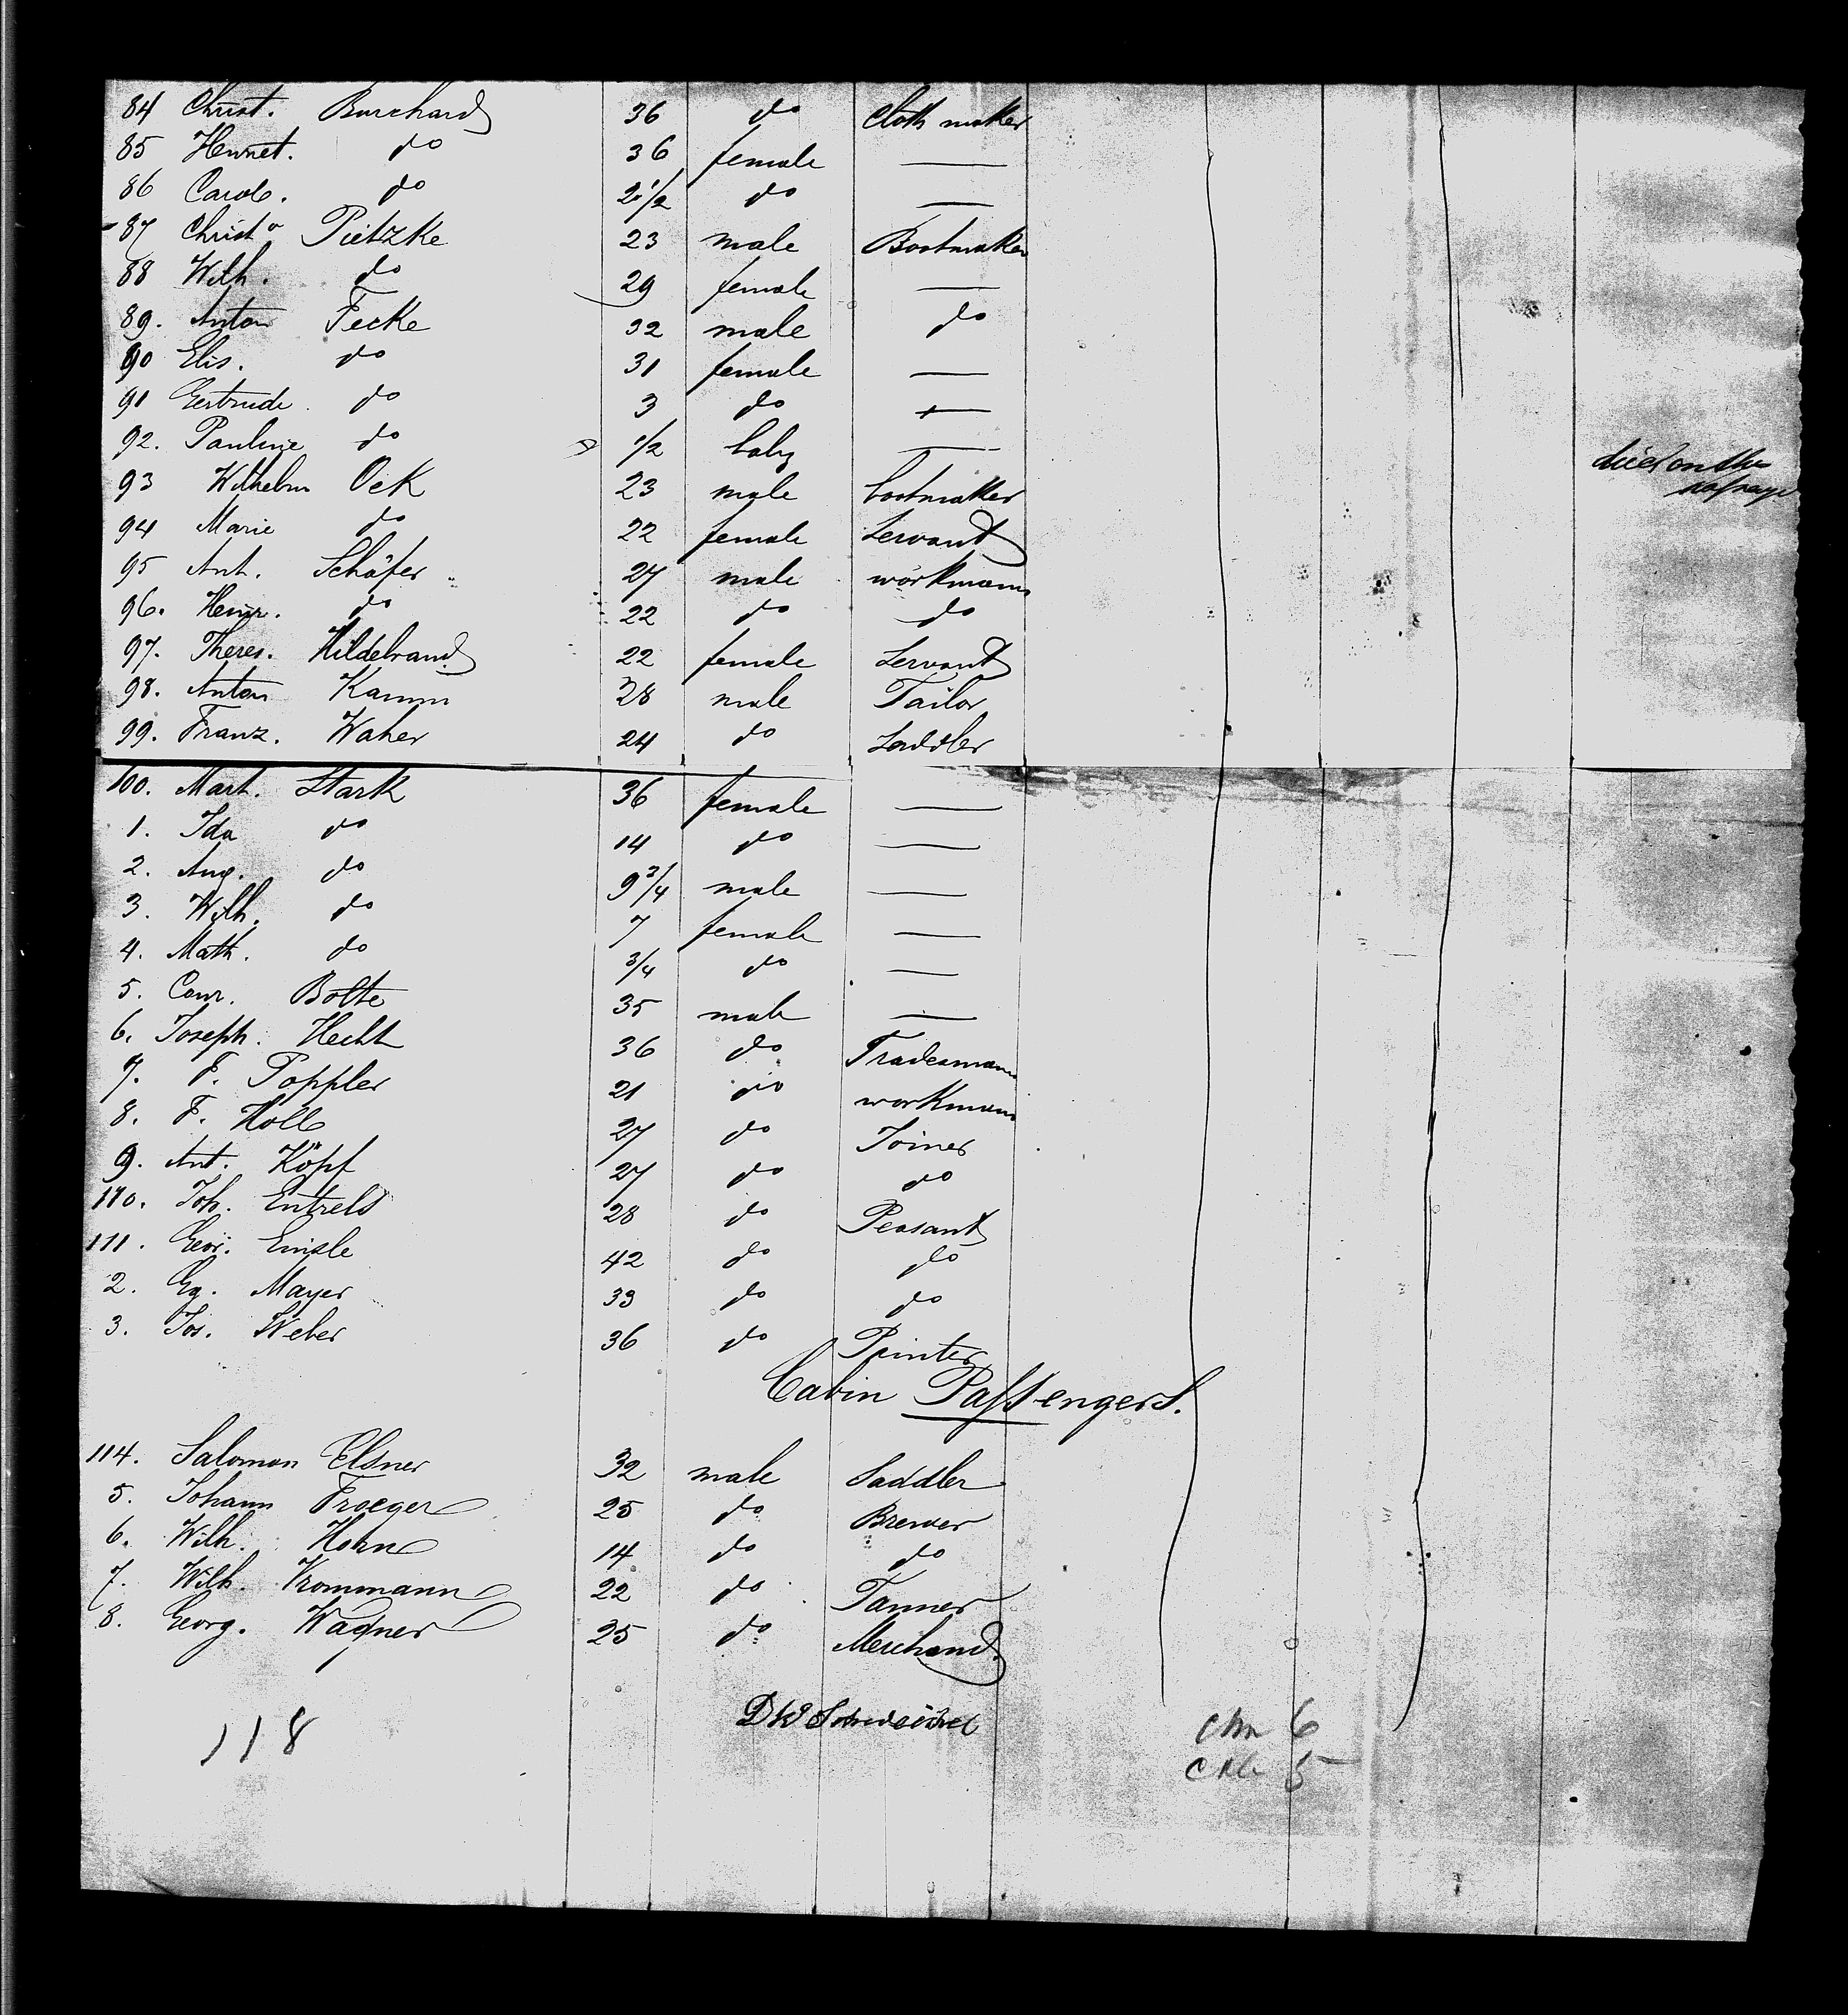 84 Christ. Burchard 36 do Cloth maker
85 Hennet. do 36 female —
86 Carol. do 2 1/2 do —
87 Christ. Pietzke 23 male Bootmaker
88 Wilh. do 29 female —
89. Anton Fecke 32 male do
90 Elis. do 31 female —
91 Gertrude do 3 do —
92. Pauline do 1/2 baby — died on the
passage
93 Wilhelm Ock 23 male bootmaker
94 Marie do 22 female Servant
95 Ant. Schäfer 27 male workmann
96. Heinr. do 22 do do
97. Theres. Hildebrand 22 female Servant
98. Anton Kamm 28 male Tailor
99. Franz. Waher 24 do Saddler
100. Mart. Stark 36 female —
1. Ida do 14 do —
2. Aug. do 9 3/4 male —
3. Wilh. do 7 female —
4. Math. do 3/4 do —
5. Conr. Bolte 35 male —
6. Joseph. Hecht 36 do Tradesmann
7. F. Poppler 21 do workmann
8. F. Holl 27 do Joiner
9. Ant. Köpf 27 do do
110. Joh. Entrels 28 do Peasant
111. Geor. Einsle 42 do do
2. Eg. Mayer 33 do do
3. Jos. Weber 36 do Printer
Cabin Passengers.
114. Salomon Elsner 32 male Saddler
5. Johann Troeger 25 do Brewer
6. Wilh. Horn 14 do do
7. Wilh. Krommann 22 do Tanner
8. Georg. Wagner 25 do Merchand
118 6
5